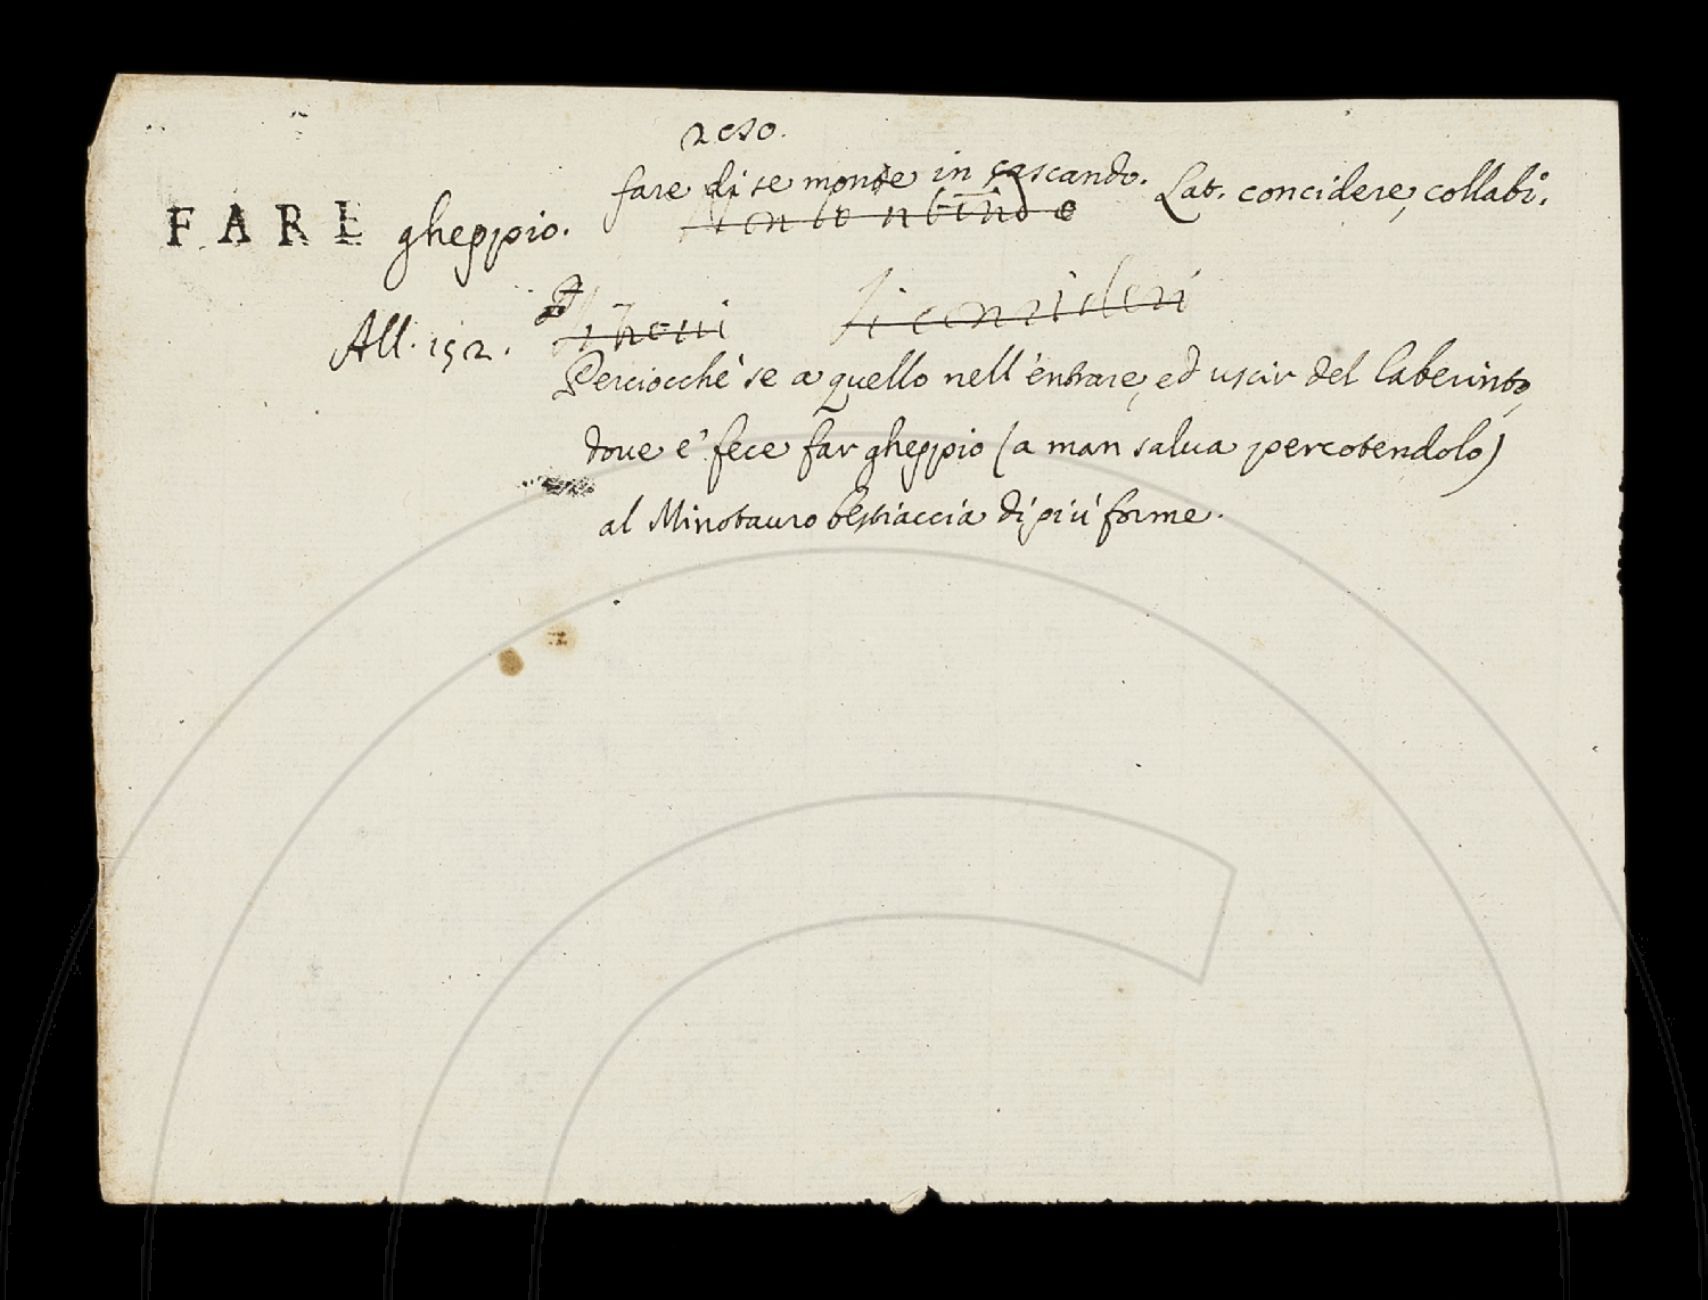 FARE gheppio. fare di se monte in cascando. Lat. concidere, collabi.
All. 152.
Perciocchè se a quello nell'entrare, ed uscir del laberinto,
doue e' fece far gheppio (a man salua percotendolo)
al Minotauro bestiaccia di più forme.